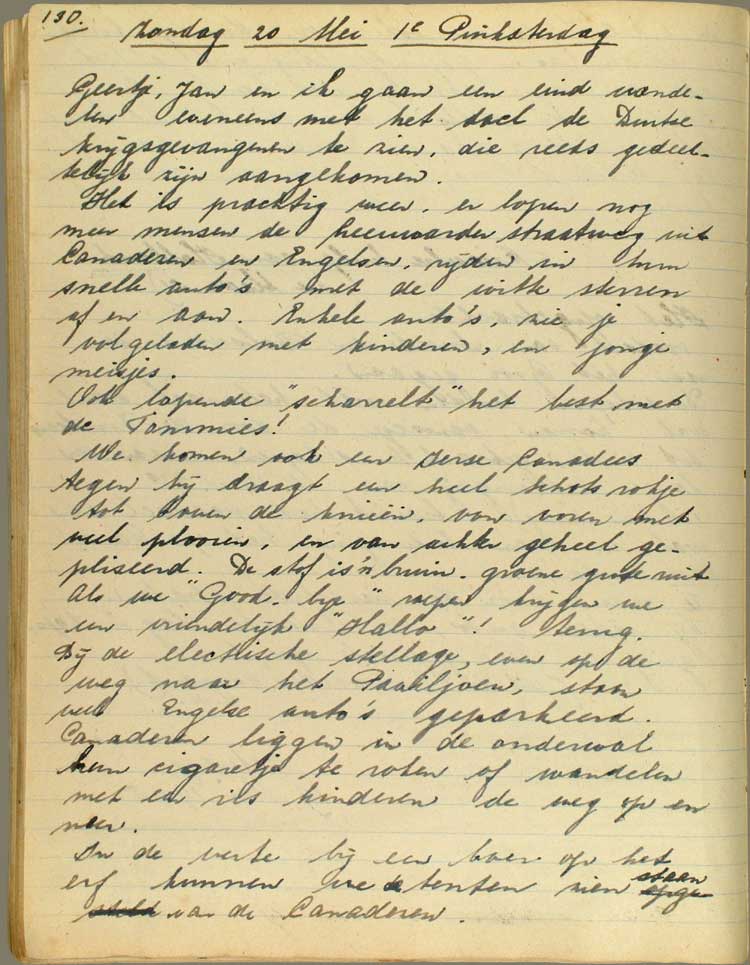 130.
Zondag 20 Mei 1e Pinksterdag
Geertje, Jan en ik gaan een eind wande-
len eveneens met het doel de Duitse
krijgsgevangenen te zien, die reeds gedeel-
telijk zijn aangekomen.
Het is prachtig weer, er lopen nog
meer mensen de heerwaarder straatweg uit
Canadezen en Engelsen, rijden in hun
snelle auto's met de witte sterren
af en aan. Enkele auto's, zie je
volgeladen met kinderen, en jonge
meisjes.
Ook lopende "scharrelt" het best met
de Tommies!
We komen ook een Canadees
tegen hij draagt een heel schots rokje
tot boven de knieën, van voren met
veel plooien, en van achter geheel ge-
pliseerd. De stof is 'n bruin-groene grote ruit
Als we "Good-bye" roepen krijgen we
een vriendelijk "Hallo"! terug.
Bij de electrische stellage, even op de
weg naar het Paviljoen, staan
veel Engelse auto's geparkeerd.
Canadezen liggen in de onderwal
hun cigaretje te roken of wandelen
met een kinderen de weg op en
neer.
In de verte bij een boer op het
erf kunnen we de tenten zien staan
van de Canadezen.